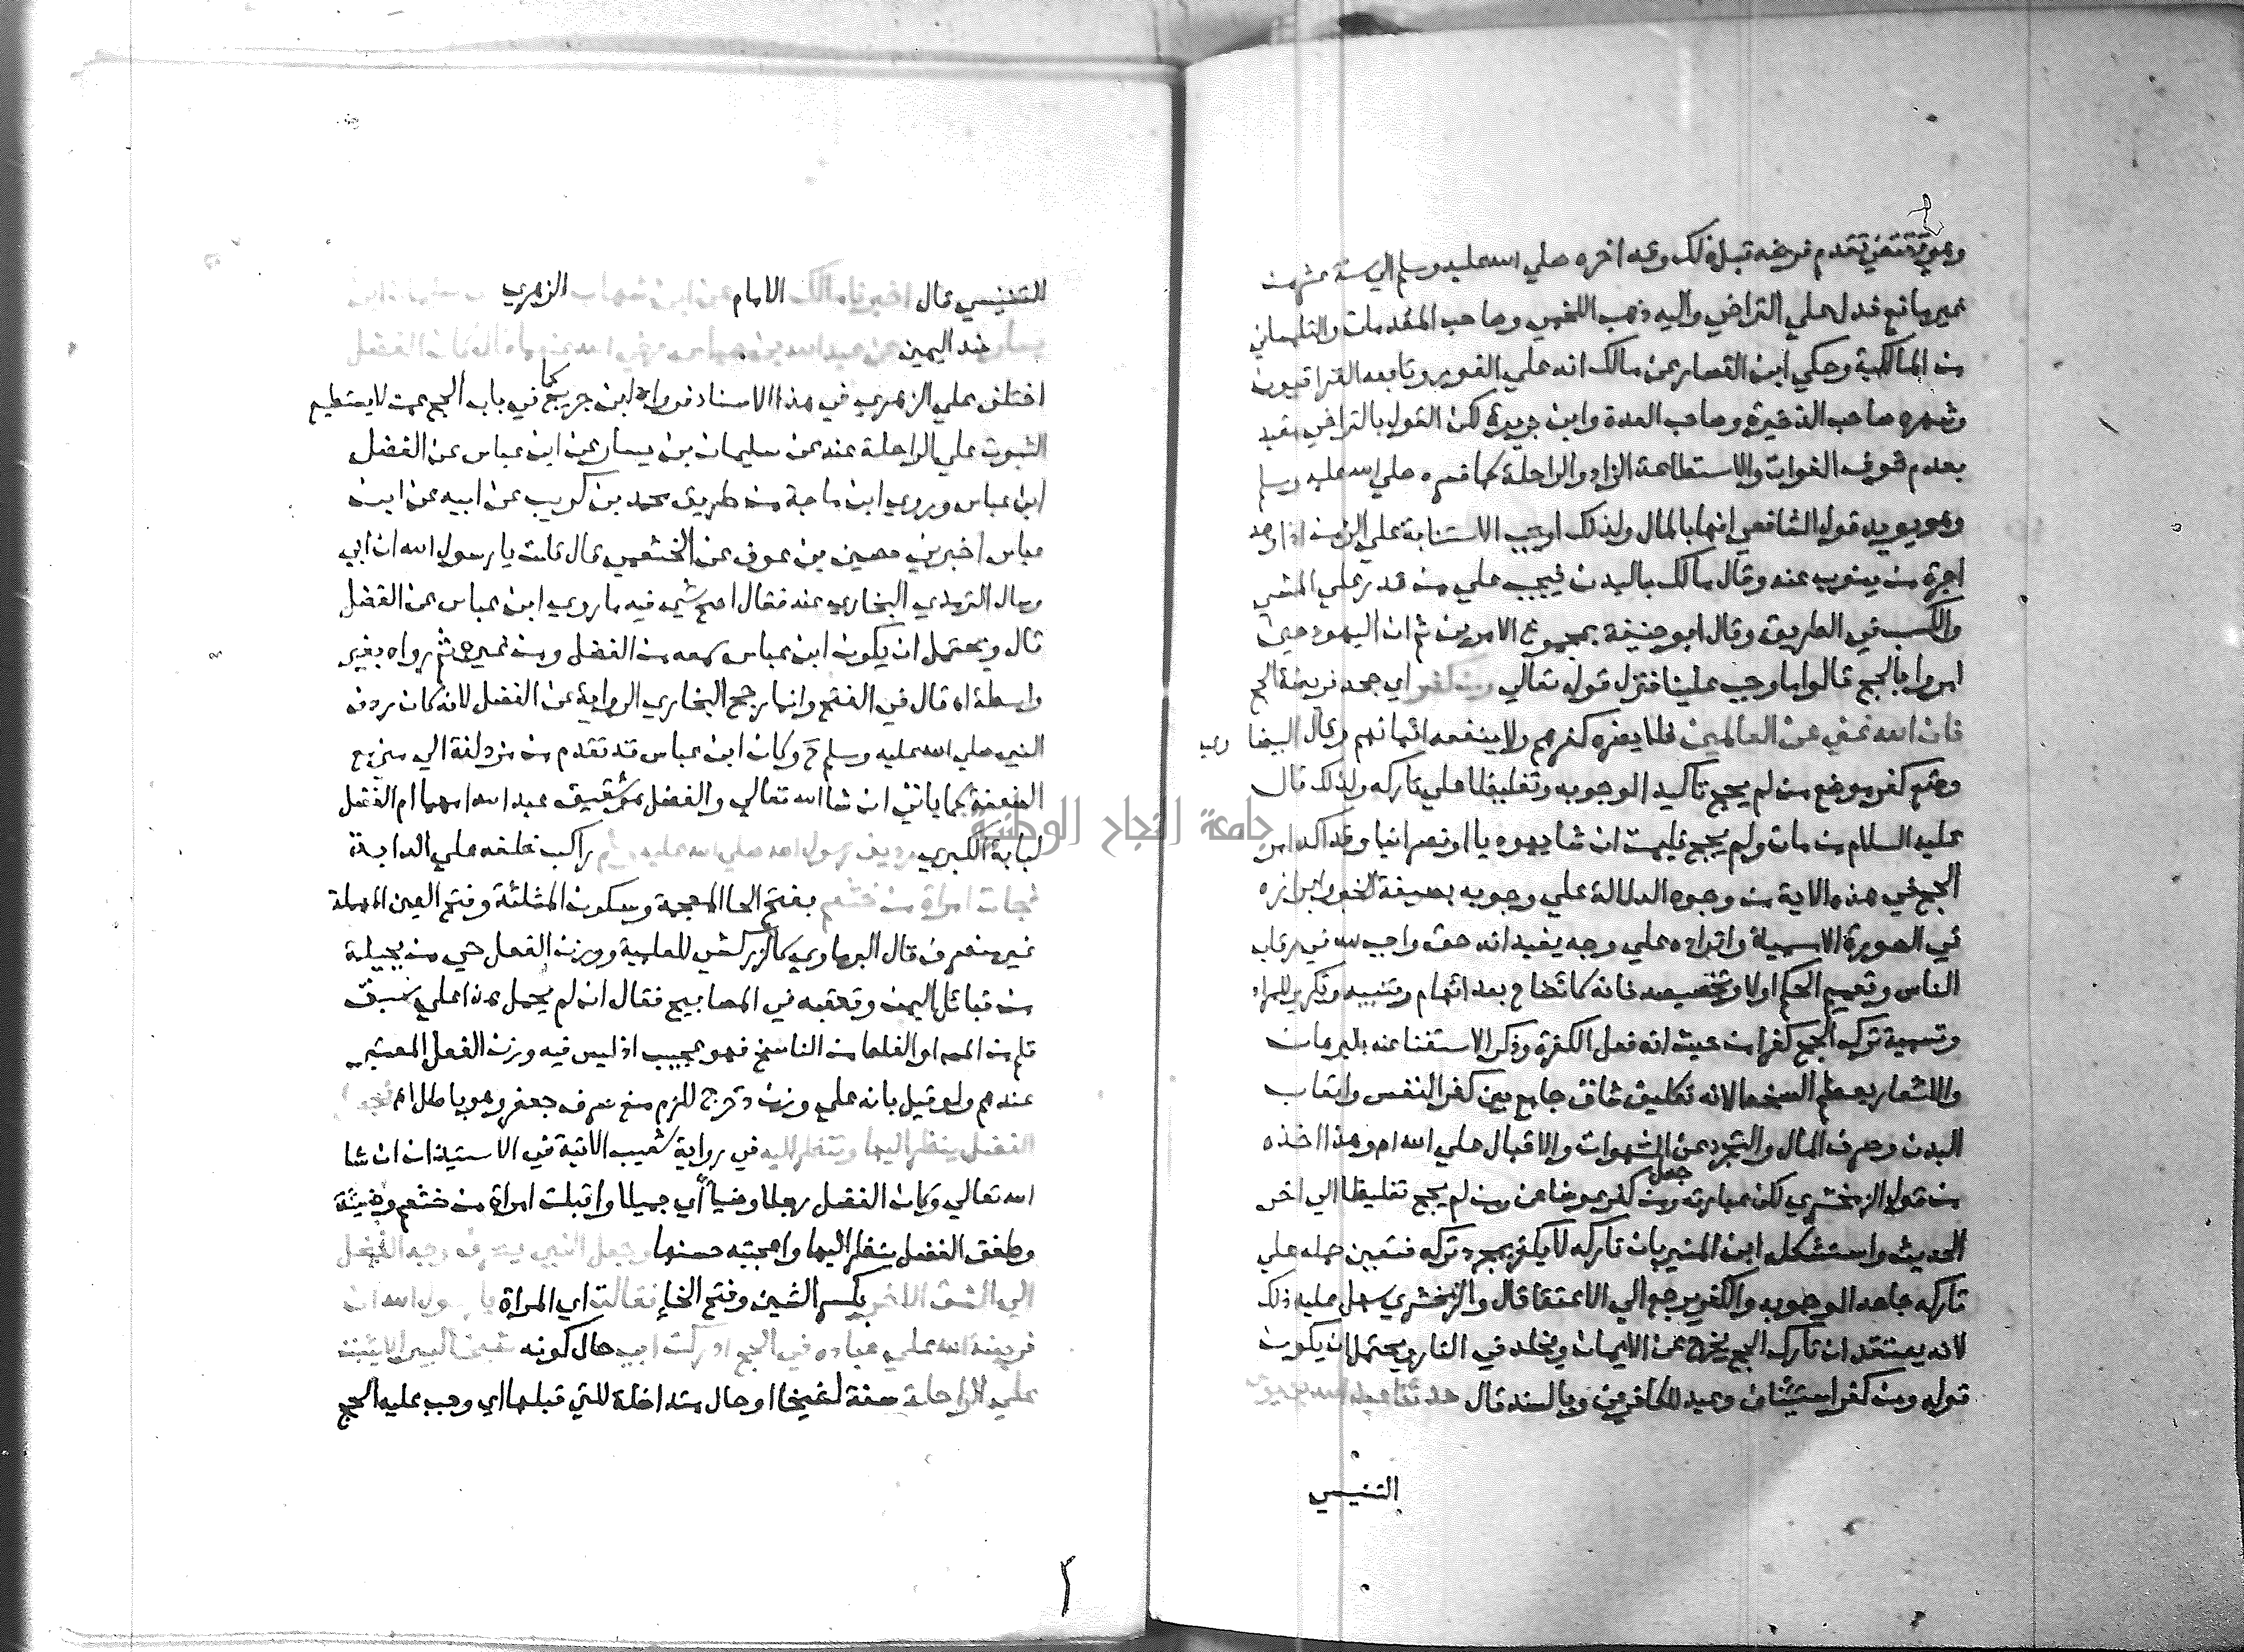 وهو يقتضي تقدم فرضه قبل ذلك وقد اخره صلي الله عليه وسلم الي سنة عشر من
غير مانع فدل علي التراخي واليه ذهب اللخمي وصاحب المقدمات والتلمساني
من المالكية وحكي ابن القصار عن مالك انه علي الفور وتابعه القراقيون
وشهره صاحب الذخيرة وصاحب العمدة وابن بزيزة لكن القول بالتراخي مقيد
بعدم خوف الفوات والاستطاعة الزاد والراحلة كما فسره صلي الله عليه وسلم
وهو يويد قول الشافعي انها بالمال ولذلك اوجب الاستنابة علي الزمن اذا وجد
اجرة من ينوب عنه وقال مالك بالبدن فيجب علي من قدر علي المشي
والكسب في الطريق وقال ابو حنيفة بمجموع الامرين ثم ان اليهود حين
امروا بالحج قالوا ما وجب علينا فنزل قوله تعالي ومن كفر اي جحد فريضة الحج
فان الله غني عن العالمين فلا يضره كفرهم ولا ينفعه ايمانهم وقال البيضا وي
وضع كفر موضع من لم يحج تاكيدا لوجوبه وتغليظا علي تاركه ولذلك قال
عليه السلام من مات ولم يحج فليمت ان شا يهوديا او نصرانيا وقد اكد امر
الحج في هذه الاية من وجوه الدلالة علي وجوبه بصيغة الخبر وابرازه
في الصورة الاسمية وايراده علي وجه يفيد انه حق واجب لله في رقاب
الناس وتعميم الحكم اولا وتخصيصه فانه كايضاح بعد ابهام وتثنيه وتكرير للمراد
وتسمية ترك الحج كفرا من حيث انه فعل الكفرة وذكر الاستغنا عنه بالبرهان
والاشعار بعظم السخط لانه تكليف شاق جامع بين كفر النفس واتعاب
البدن وصرف المال والتجرد عن الشهوات والاقبال علي الله اه وهذا اخذه
من قول الزمخشري لكن عبارته جعل ومن كفر عوضا عن ومن لم يحج تغليظا الي اخر
الحديث واستشكله ابن المنير بان تاركه لا يكفر بمجرد تركه فتعين حمله علي
تاركه جاحدا لوجوبه والكفر يرجع الي الاعتقاد قال والزمخشري سهل عليه ذلك
لانه يعتقد ان تارك الحج يخرج عن الايمان ويخلد في النار ويحتمل ان يكون
قوله ومن كفر استئناف وعيد للكافرين وبالسند قال حدثنا عبد الله بن يوسف
التنيسي
للتنيسي قال الامام الزهري
ضد اليمين
اختلف علي الزهري في هذا الاسناد فرواه ابن جريج كما في باب الحج عمن لا يستطيع
الثبوت علي الراحلة عنه عن سليمان بن يسار عن ابن عباس عن الفضل
ابن عباس وروي ابن ماجة من طريق محمد بن كريب عن ابيه عن ابن
عباس اخبرني حصين بن عوف عن الخثعمي قال قلت يا رسول الله ان ابي
وسال الترمذي البخاري عنه فقال اصح شي فيه ما روي ابن عباس عن الفضل
قال ويحتمل ان يكون ابن عباس سمعه من الفضل ومن غيره ثم رواه بغير
واسطة اه قال في الفتح وانما رجح البخاري الرواية عن الفضل لانه كان ردف
النبي صلي الله عليه وسلم ح وكان ابن عباس قد تقدم من مزدلفة الي مني مع
الضعفة كما ياتي ان شا الله تعالي والفضل هو شقيق عبد الله امهما ام الفضل
لبابة الكبري رديف رسول الله صلي الله عليه وسلم راكب خلفه علي الدابة
فجات امراة من خثعم بفتح الخا المعجمة وسكون المثلثة وفتح العين المهملة
غير منصرف قال البرماوي كالزركشي للعلمية ووزن الفعل حي من بجيلة
من قبائل اليمن وتعقبه في المصابيح فقال ان لم يحمل هذا علي سبق
قلم من المص او الغلط من الناسخ فهو عجيب اذ ليس فيه وزن الفعل المعتبر
عندهم ولو قيل بانه علي وزن دحرج للزم منع صرف جعفر وهو باطل اه فجعل
الفضل ينظر اليها وتنظر اليه في رواية شعيب الاتية في الاستيذان ان شا
الله تعالي وكان الفضل رجلا وضياً اي جميلا واقبلت امراة من خثعم وضيئة
وطفق الفضل ينظر اليها واعجبه حسنها وجعل النبي يصرف وجه الفضل
الي الشق الاخر بكسر الشين وفتح الخا فقالت اي المراة يا رسول الله ان
فريضة الله علي عباده في الحج ادركت ابي حال كونه شيخا كبيرا لا يثبت
علي الراحلة صفة لشيخا او حال متداخلة للتي قبلها اي وجب عليه الحج